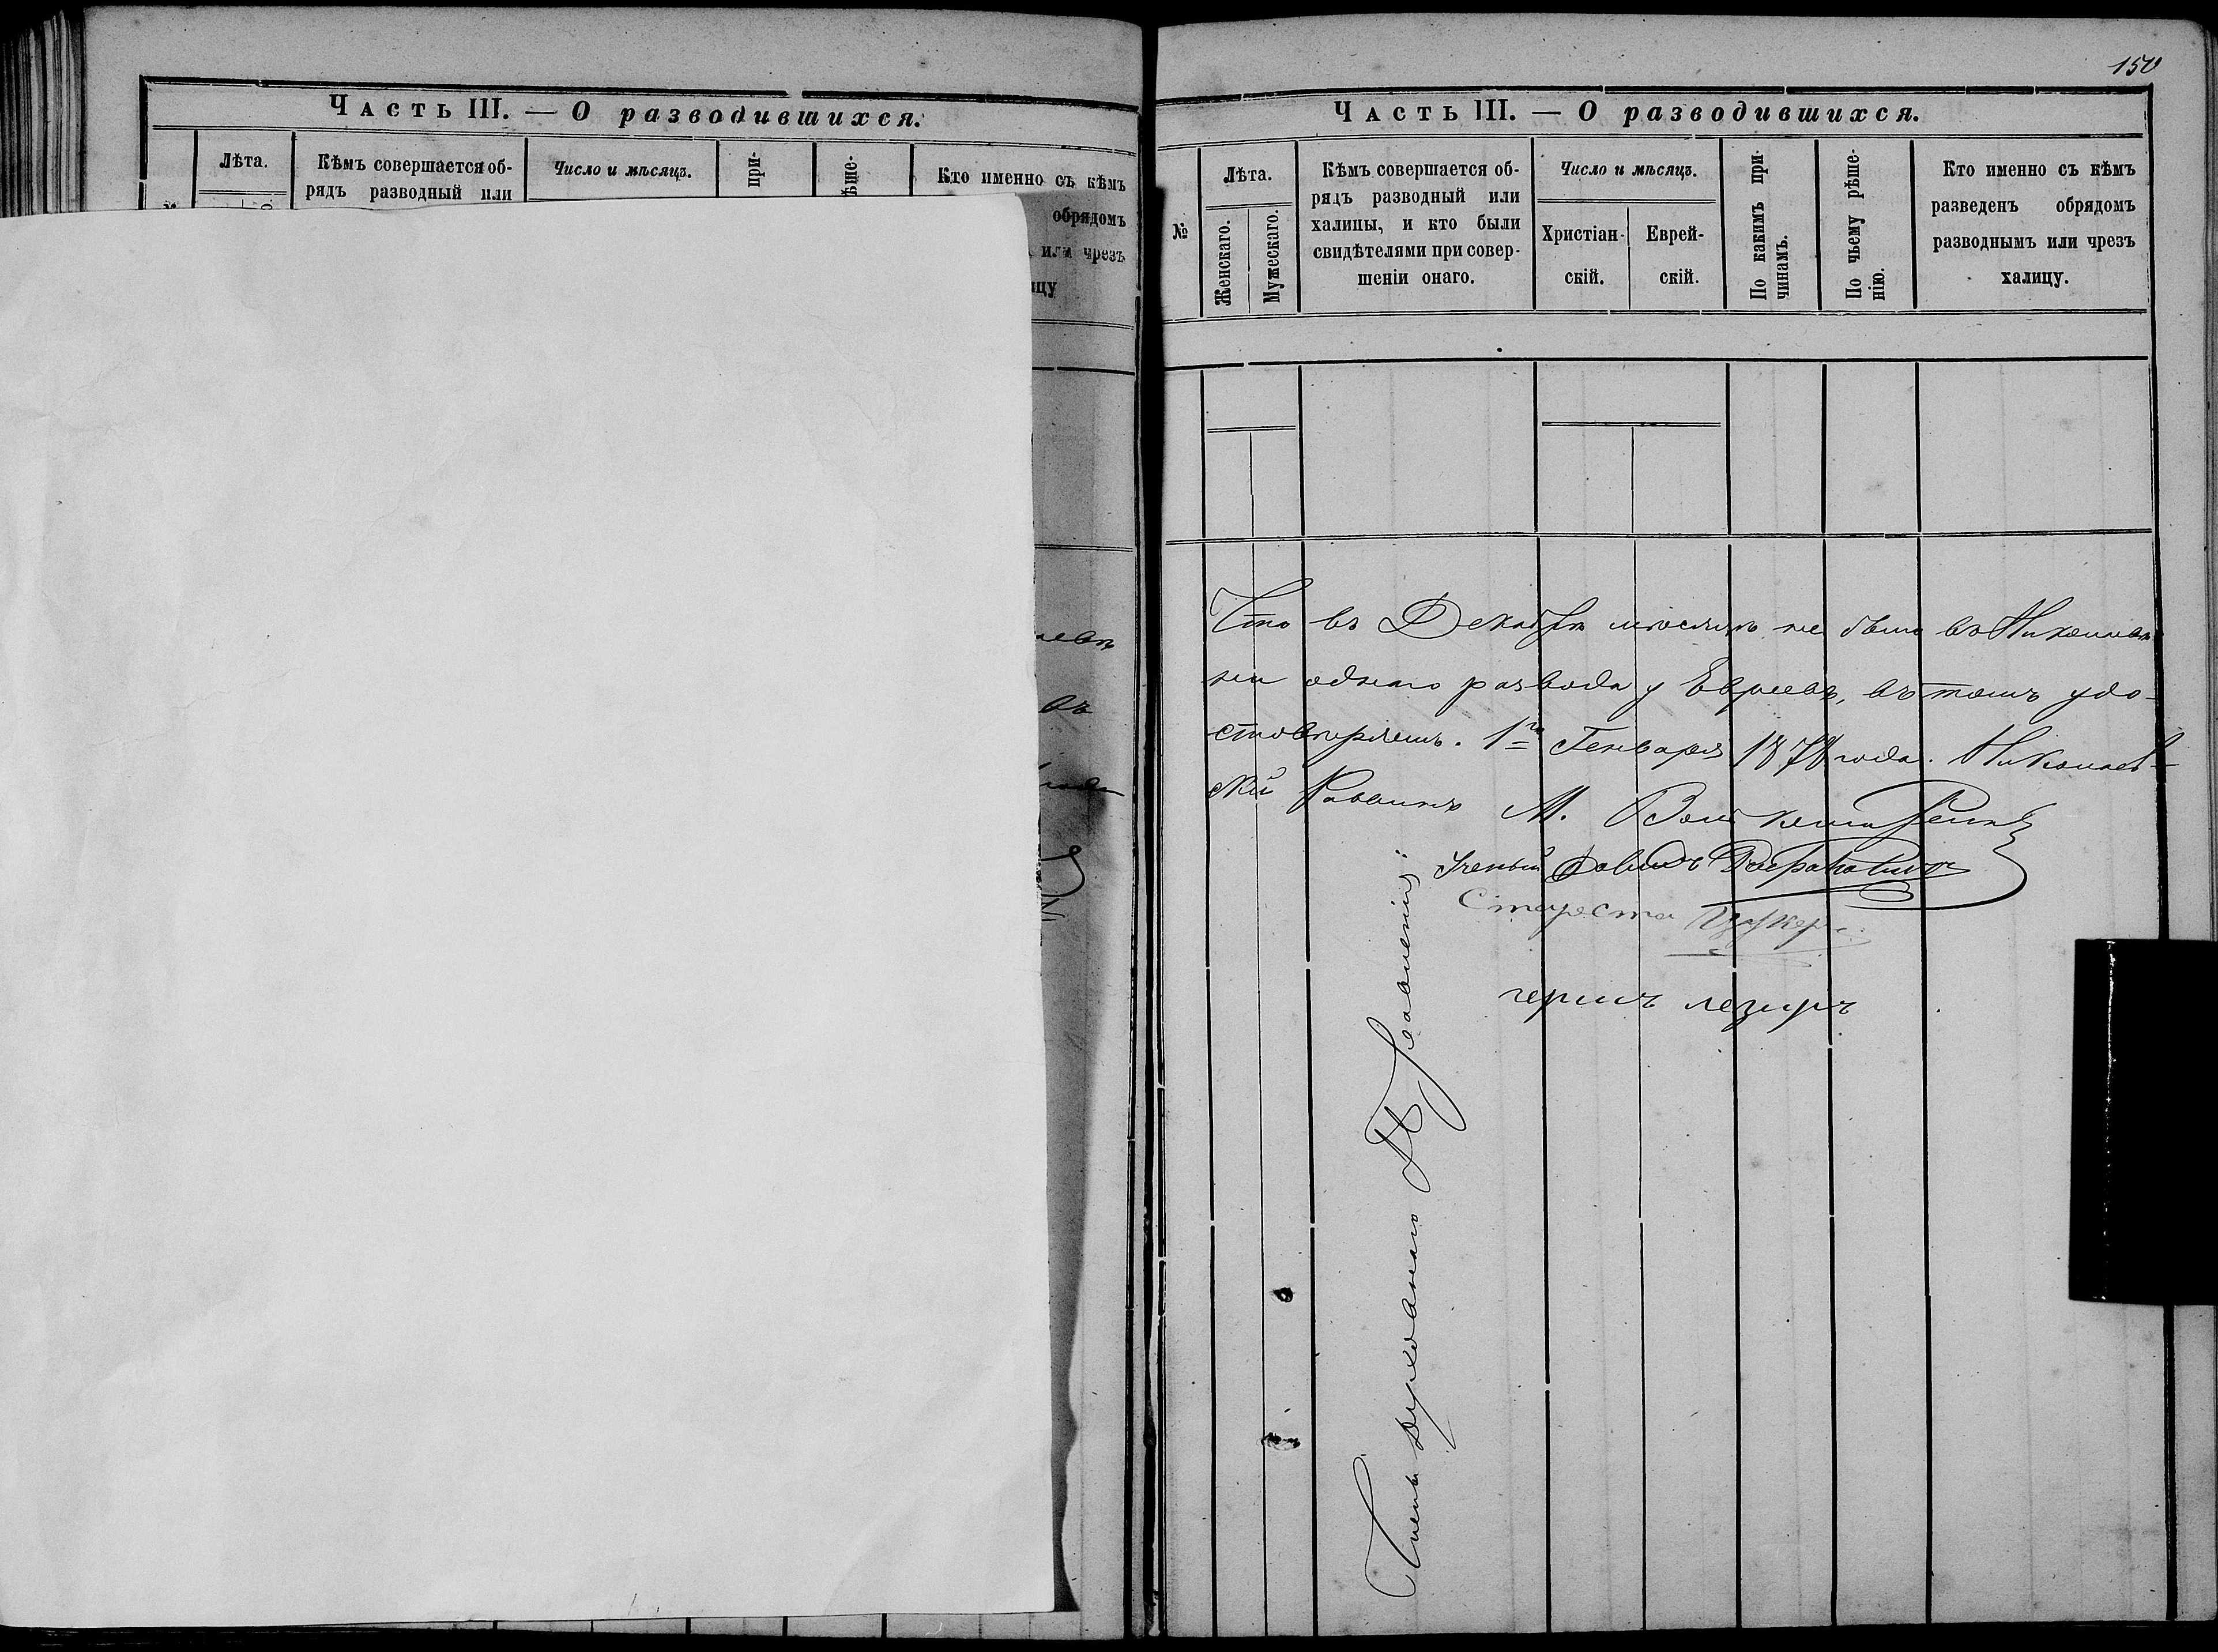 Часть III. — О разводившихся.
Лѣта.
Кѣмъ совершается об-
рядъ разводный или
Число и мѣсяцъ.
при-
ѣше-
Кто именно съ кѣмъ
обрядомъ
или чрезъ
цу
въ
150
Часть III. — О разводившихся.
№
Лѣта.
Женскаго.
Мужескаго.
Кѣмъ совершается об-
рядъ разводный или
халицы, и кто были
свидѣтелями при совер-
шеніи онаго.
Число и мѣсяцъ.
Христіан-
скій.
Еврей-
скій.
По какимъ при-
чинамъ.
По чьему рѣше-
нію.
Кто именно съ кѣмъ
разведенъ обрядомъ
разводнымъ или чрезъ
халицу.
Что въ Декабрѣ мѣсяцѣ не было въ Николаевѣ
ни однаго развода у Евреевъ, въ томъ удо-
стовѣряемъ. 1го Генваря 1878 года. Николаев-
скій Раввинъ М.
Ученый Давидъ
Староста Цукер
гершъ лезиръ
Члены духовнаго Правленія: